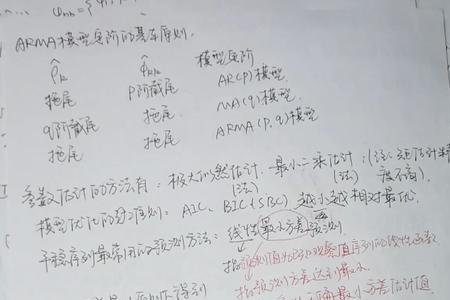 φ̂kk={
ARMA模型定阶的基本原则.
ρ̂k φ̂kk 模型定阶
拖尾 p阶截尾 AR(p)模型.
q阶截尾 拖尾 MA(q)模型.
拖尾 拖尾 ARMA(p,q)模型
参数估计的方法有:极大似然估计、最小二乘估计;(注:矩估计精
(法) (法) 度不高).
模型优化的准则:AIC、BIC(SBC)越小越相对最优.
平稳序列最常用的预测方法:线性最小方差预测.
指预测值为观察值序列的线性函数
指预测方差达到最小.
最小方差估计值